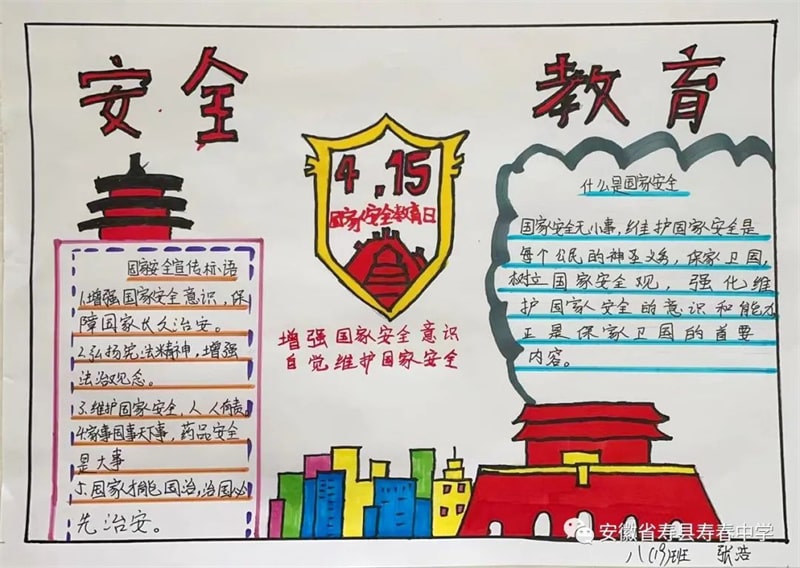 安全
教育
4.15
国家安全教育日
增强国家安全意识
自觉维护国家安全
国家安全宣传标语
1.增强国家安全意识，保
障国家长久治安。
2.弘扬宪法精神，增强
法治观念。
3.维护国家安全，人人有责。
4.家事国事天下事，药品安全
是大事
5.国家才能国治，治国必
先治安。
什么是国家安全
国家安全无小事，维护国家安全是
每个公民的神圣义务，保家卫国，
树立国家安全观，强化维
护国家安全的意识和能力
正是保家卫国的首要
内容。
安徽省寿县寿春中学
八(19)班 张浩